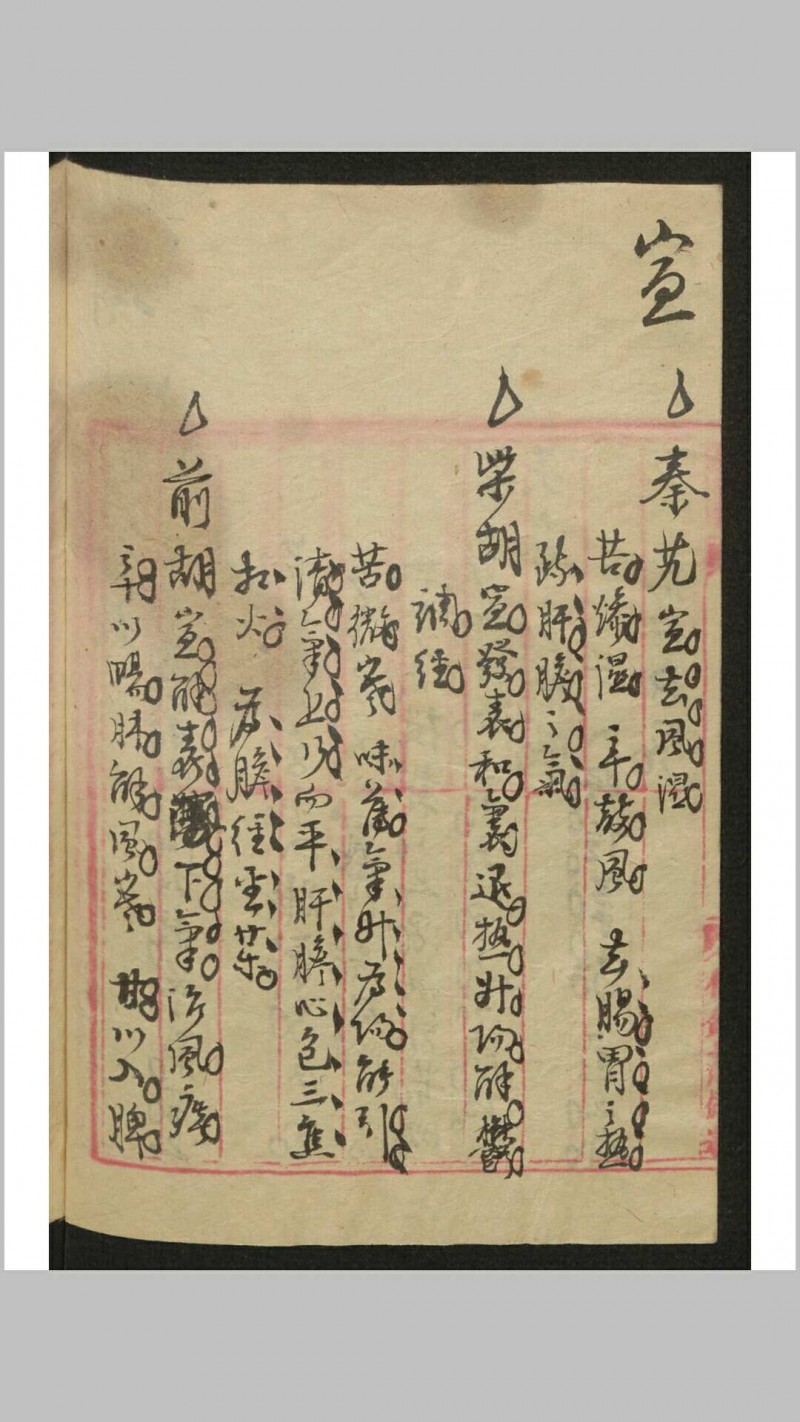 宣
秦艽宣去風濕
苦燥濕 辛散風 去腸胃之熱
疏肝膽之氣
柴胡宣發表和裏退熱升陽解鬱
調經
苦微寒 味薄氣升為陽能引
清氣上行而平肝膽心包三焦
相火 為膽經要藥
前胡宣解表 下氣治風痰
辛以暢肺解風寒 甘以入脾